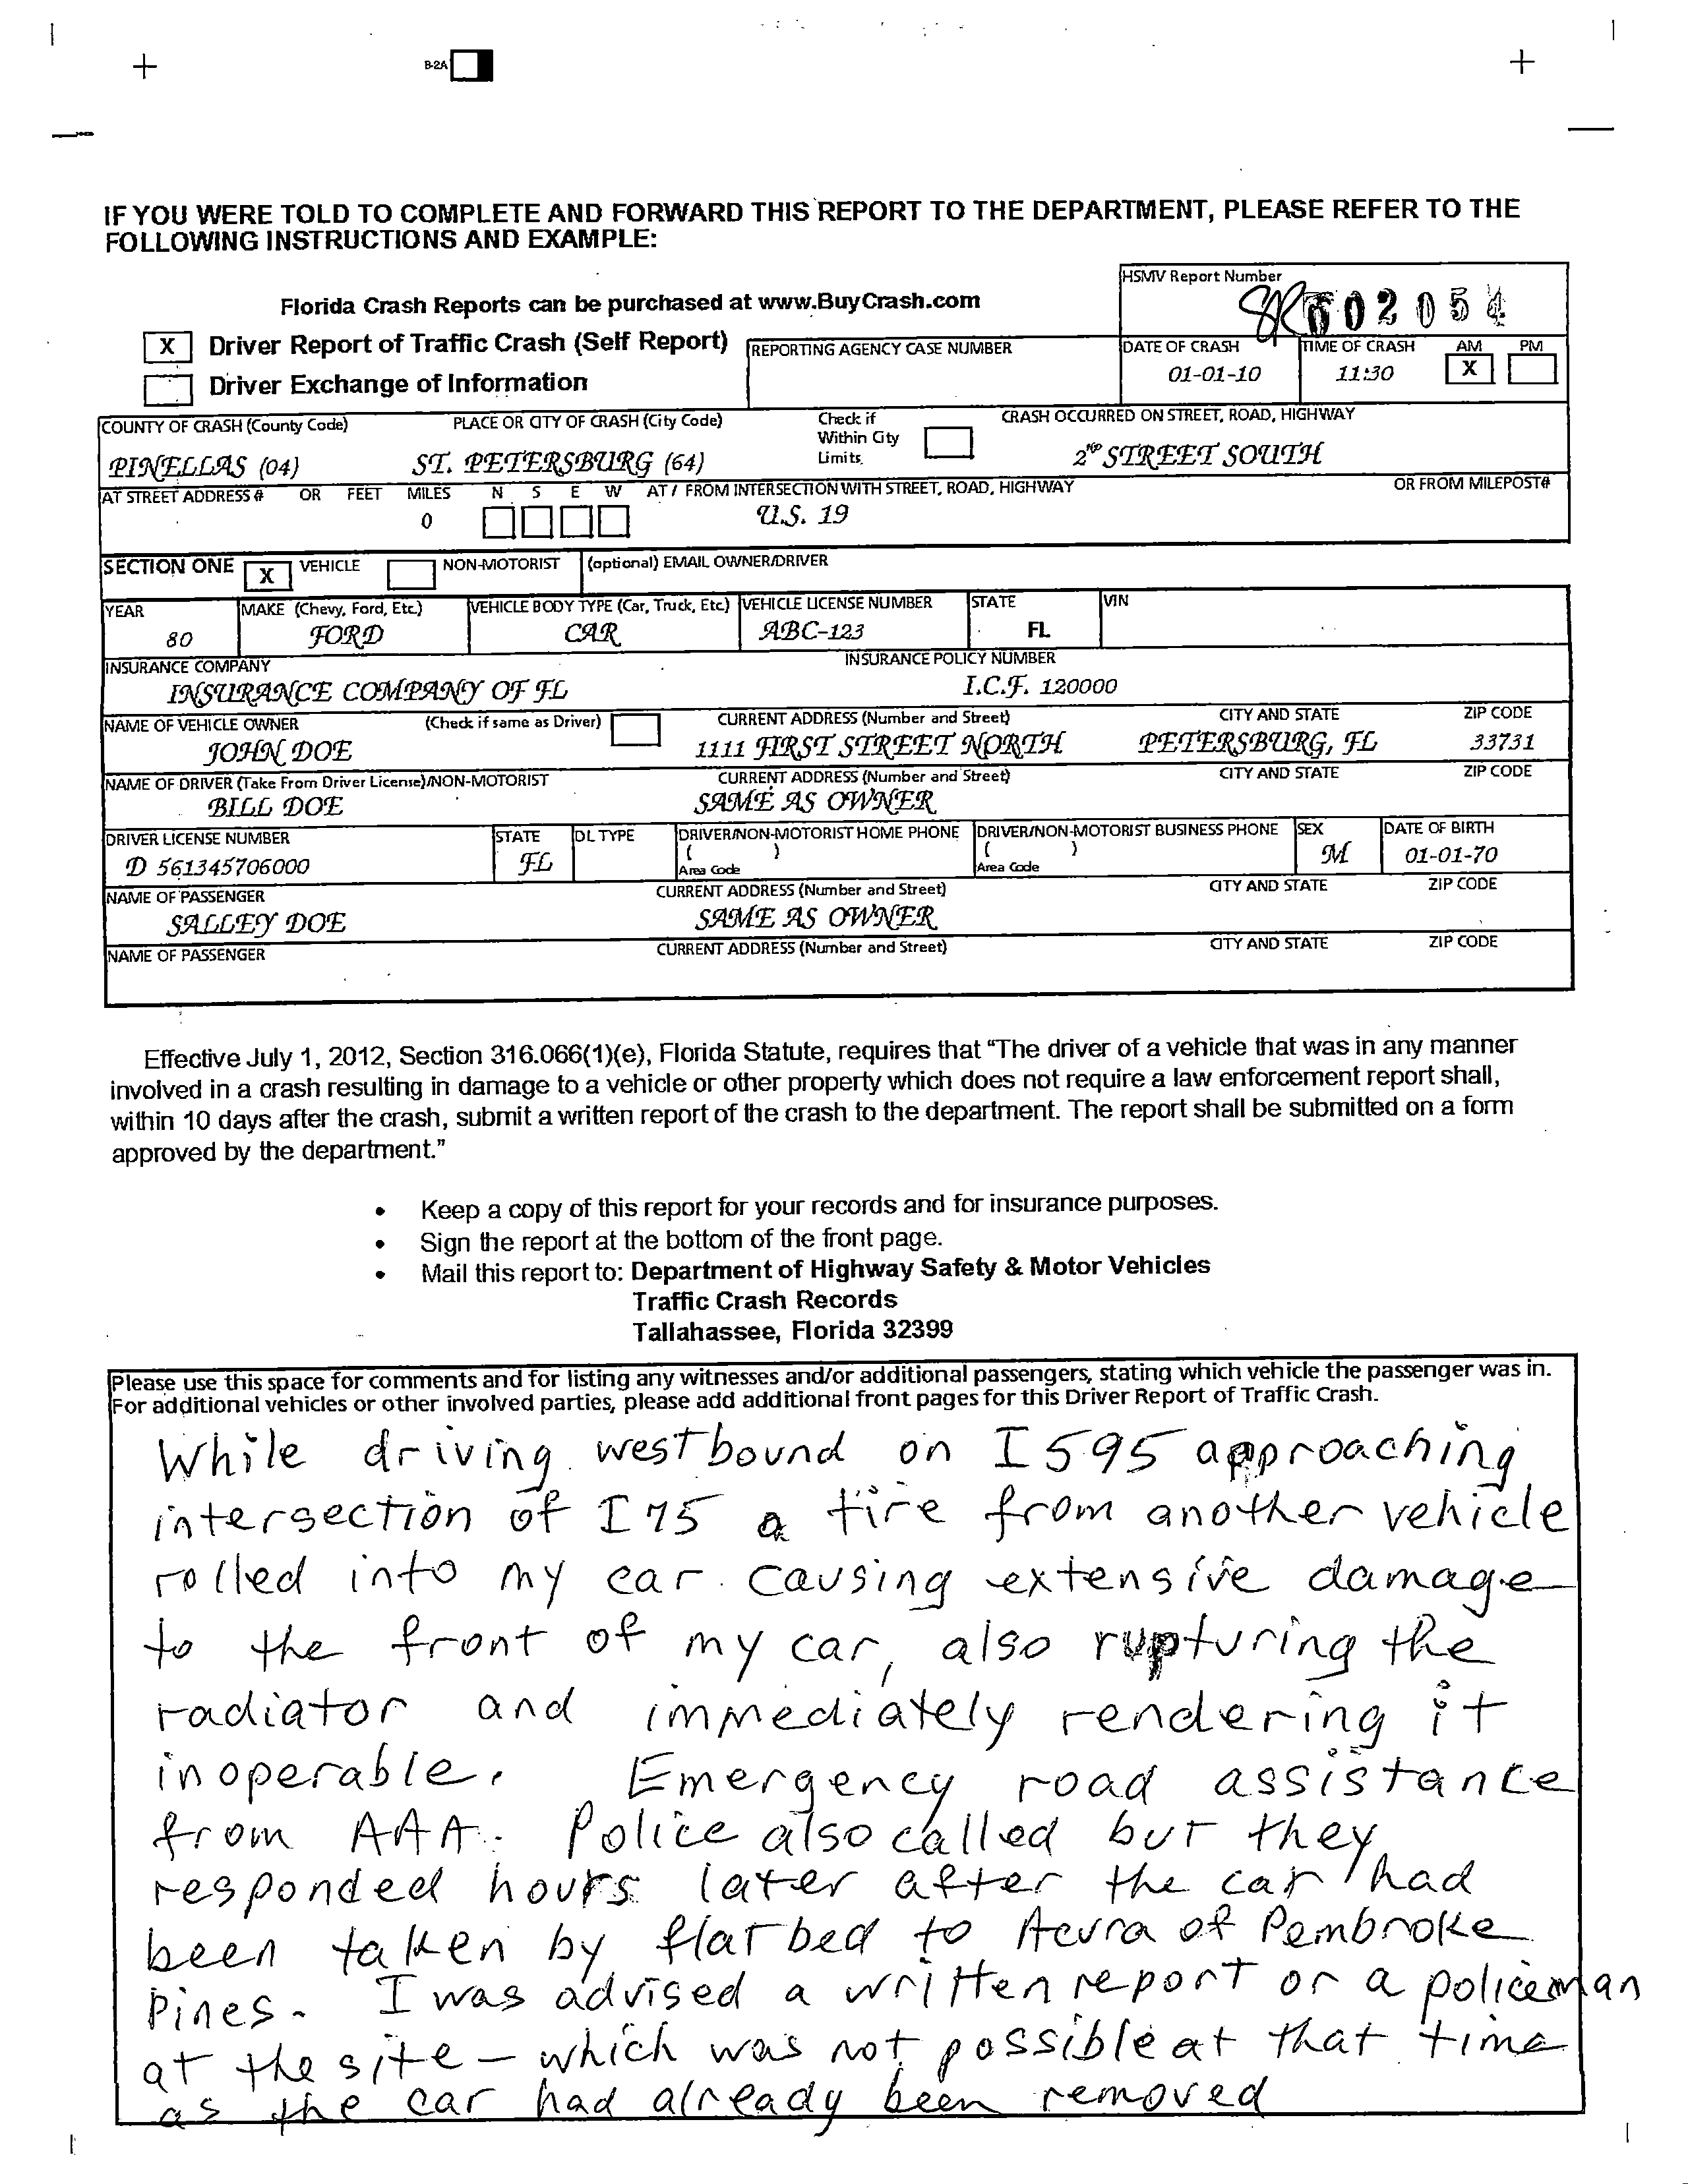 B-2A
IF YOU WERE TOLD TO COMPLETE AND FORWARD THIS REPORT TO THE DEPARTMENT, PLEASE REFER TO THE
FOLLOWING INSTRUCTIONS AND EXAMPLE:
HSMV Report Number
602054
Florida Crash Reports can be purchased at www.BuyCrash.com
X Driver Report of Traffic Crash (Self Report)
Driver Exchange of Information
REPORTING AGENCY CASE NUMBER
DATE OF CRASH TIME OF CRASH AM PM
01-01-10 11:30 X
COUNTY OF CRASH (County Code) PLACE OR CITY OF CRASH (City Code) Check if Within City Limits CRASH OCCURRED ON STREET, ROAD, HIGHWAY
PINELLAS (04) ST. PETERSBURG (64) 2ND STREET SOUTH
AT STREET ADDRESS # OR FEET MILES N S E W AT / FROM INTERSECTION WITH STREET, ROAD, HIGHWAY OR FROM MILEPOST#
0 U.S. 19
SECTION ONE X VEHICLE NON-MOTORIST (optional) EMAIL OWNER/DRIVER
YEAR MAKE (Chevy, Ford, Etc.) VEHICLE BODY TYPE (Car, Truck, Etc.) VEHICLE LICENSE NUMBER STATE VIN
80 FORD CAR ABC-123 FL
INSURANCE COMPANY INSURANCE POLICY NUMBER
INSURANCE COMPANY OF FL I.C.F. 120000
NAME OF VEHICLE OWNER (Check if same as Driver) CURRENT ADDRESS (Number and Street) CITY AND STATE ZIP CODE
JOHN DOE 1111 FIRST STREET NORTH PETERSBURG, FL 33731
NAME OF DRIVER (Take From Driver License)/NON-MOTORIST CURRENT ADDRESS (Number and Street) CITY AND STATE ZIP CODE
BILL DOE SAME AS OWNER
DRIVER LICENSE NUMBER STATE DL TYPE DRIVER/NON-MOTORIST HOME PHONE DRIVER/NON-MOTORIST BUSINESS PHONE SEX DATE OF BIRTH
D 561345706000 FL ( ) ( ) M 01-01-70
Area Code Area Code
NAME OF PASSENGER CURRENT ADDRESS (Number and Street) CITY AND STATE ZIP CODE
SALLEY DOE SAME AS OWNER
NAME OF PASSENGER CURRENT ADDRESS (Number and Street) CITY AND STATE ZIP CODE
Effective July 1, 2012, Section 316.066(1)(e), Florida Statute, requires that "The driver of a vehicle that was in any manner
involved in a crash resulting in damage to a vehicle or other property which does not require a law enforcement report shall,
within 10 days after the crash, submit a written report of the crash to the department. The report shall be submitted on a form
approved by the department."
• Keep a copy of this report for your records and for insurance purposes.
• Sign the report at the bottom of the front page.
• Mail this report to: Department of Highway Safety & Motor Vehicles
Traffic Crash Records
Tallahassee, Florida 32399
Please use this space for comments and for listing any witnesses and/or additional passengers, stating which vehicle the passenger was in.
For additional vehicles or other involved parties, please add additional front pages for this Driver Report of Traffic Crash.
While driving westbound on I 595 approaching
intersection of I 75 a tire from another vehicle
rolled into my car causing extensive damage
to the front of my car, also rupturing the
radiator and immediately rendering it
inoperable. Emergency road assistance
from AAA. Police also called but they
responded hours later after the car had
been taken by flatbed to Acura of Pembroke
Pines. I was advised a written report or a policeman
at the site - which was not possible at that time
as the car had already been removed